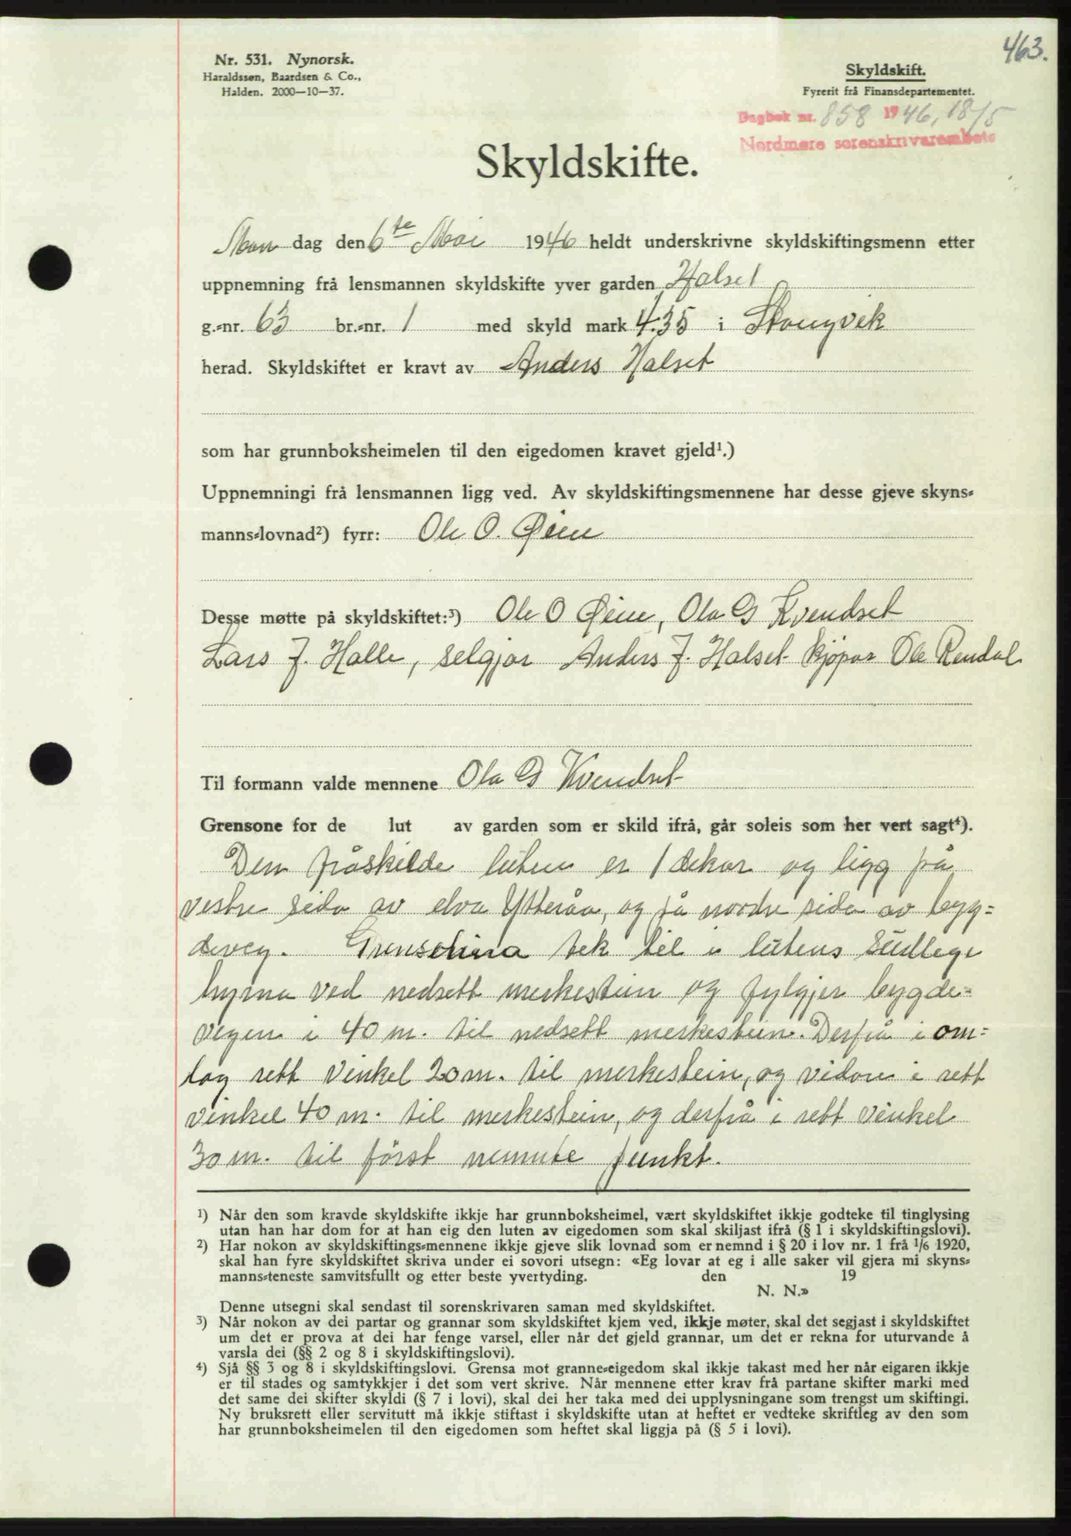 463.
Nr. 531. Nynorsk.
Haraldssen, Baardsen & Co.,
Halden. 2000—10—37.
Skyldskift.
Fyrerit frå Finansdepartementet.
Dagbok nr. 858 1946, 18/5
Nordmøre sorenskrivarembete
Skyldskifte.
Mon dag den 6te Mai 1946 heldt underskrivne skyldskiftingsmenn etter
uppnemning frå lensmannen skyldskifte yver garden Halset
g.-nr. 63 br.-nr. 1 med skyld mark 4.35 i Stangvik
herad. Skyldskiftet er kravt av Anders Halset
som har grunnboksheimelen til den eigedomen kravet gjeld¹.)
Uppnemningi frå lensmannen ligg ved. Av skyldskiftingsmennene har desse gjeve skyns-
manns-lovnad²) fyrr: Ole O. Øien
Desse møtte på skyldskiftet:³) Ole O Øien, Ola G Kvendset
Lars J. Halle, selgjar Anders J. Halset kjøpar Ole Rendal
Til formann valde mennene Ola G Kvendset
Grensone for de lut av garden som er skild ifrå, går soleis som her vert sagt⁴).
Den fråskilde luten er 1 dekar og ligg på
vestre sida av elva Ytteråa, og på nordre sida av byg=
deveg. Grenselina tek til i lutens sudlege
hyrna ved nedsett merkestein og fylgjer bygde=
vegen i 40 m. til nedsett merkestein. Derfrå i om=
lag rett vinkel 20 m. til merkestein, og vidare i rett
vinkel 40 m. til merkestein, og derfrå i rett vinkel
30 m. til först nemnte punkt.
¹) Når den som kravde skyldskifte ikkje har grunnboksheimel, vært skyldskiftet ikkje godteke til tinglysing
utan han har dom for at han eig den luten av eigedomen som skal skiljast ifrå (§ 1 i skyldskiftingslovi).
²) Har nokon av skyldskiftings-mennene ikkje gjeve slik lovnad som er nemnd i § 20 i lov nr. 1 frå ¹/₆ 1920,
skal han fyre skyldskiftet skriva under ei sovori utsegn: «Eg lovar at eg i alle saker vil gjera mi skyns-
manns-teneste samvitsfullt og etter beste yvertyding. den 19
N. N.»
Denne utsegni skal sendast til sorenskrivaren saman med skyldskiftet.
³) Når nokon av dei partar og grannar som skyldskiftet kjem ved, ikkje møter, skal det segjast i skyldskiftet
um det er prova at dei har fenge varsel, eller når det gjeld grannar, um det er rekna for uturvande å
varsla dei (§§ 2 og 8 i skyldskiftingslovi).
⁴) Sjå §§ 3 og 8 i skyldskiftingslovi. Grensa mot granne-eigedom skal ikkje takast med her når eigaren ikkje
er til stades og samtykkjer i det som vert skrive. Når mennene etter krav frå partane skifter marki med
det same dei skifter skyldi (§ 7 i lovi), skal dei her taka med dei upplysningane som trengst um skiftingi.
Ny bruksrett eller servitutt må ikkje stiftast i skyldskifte utan at heftet er vedteke skriftleg av den som
har grunnboksheimelen til den eigedomen som heftet skal liggja på (§ 5 i lovi).